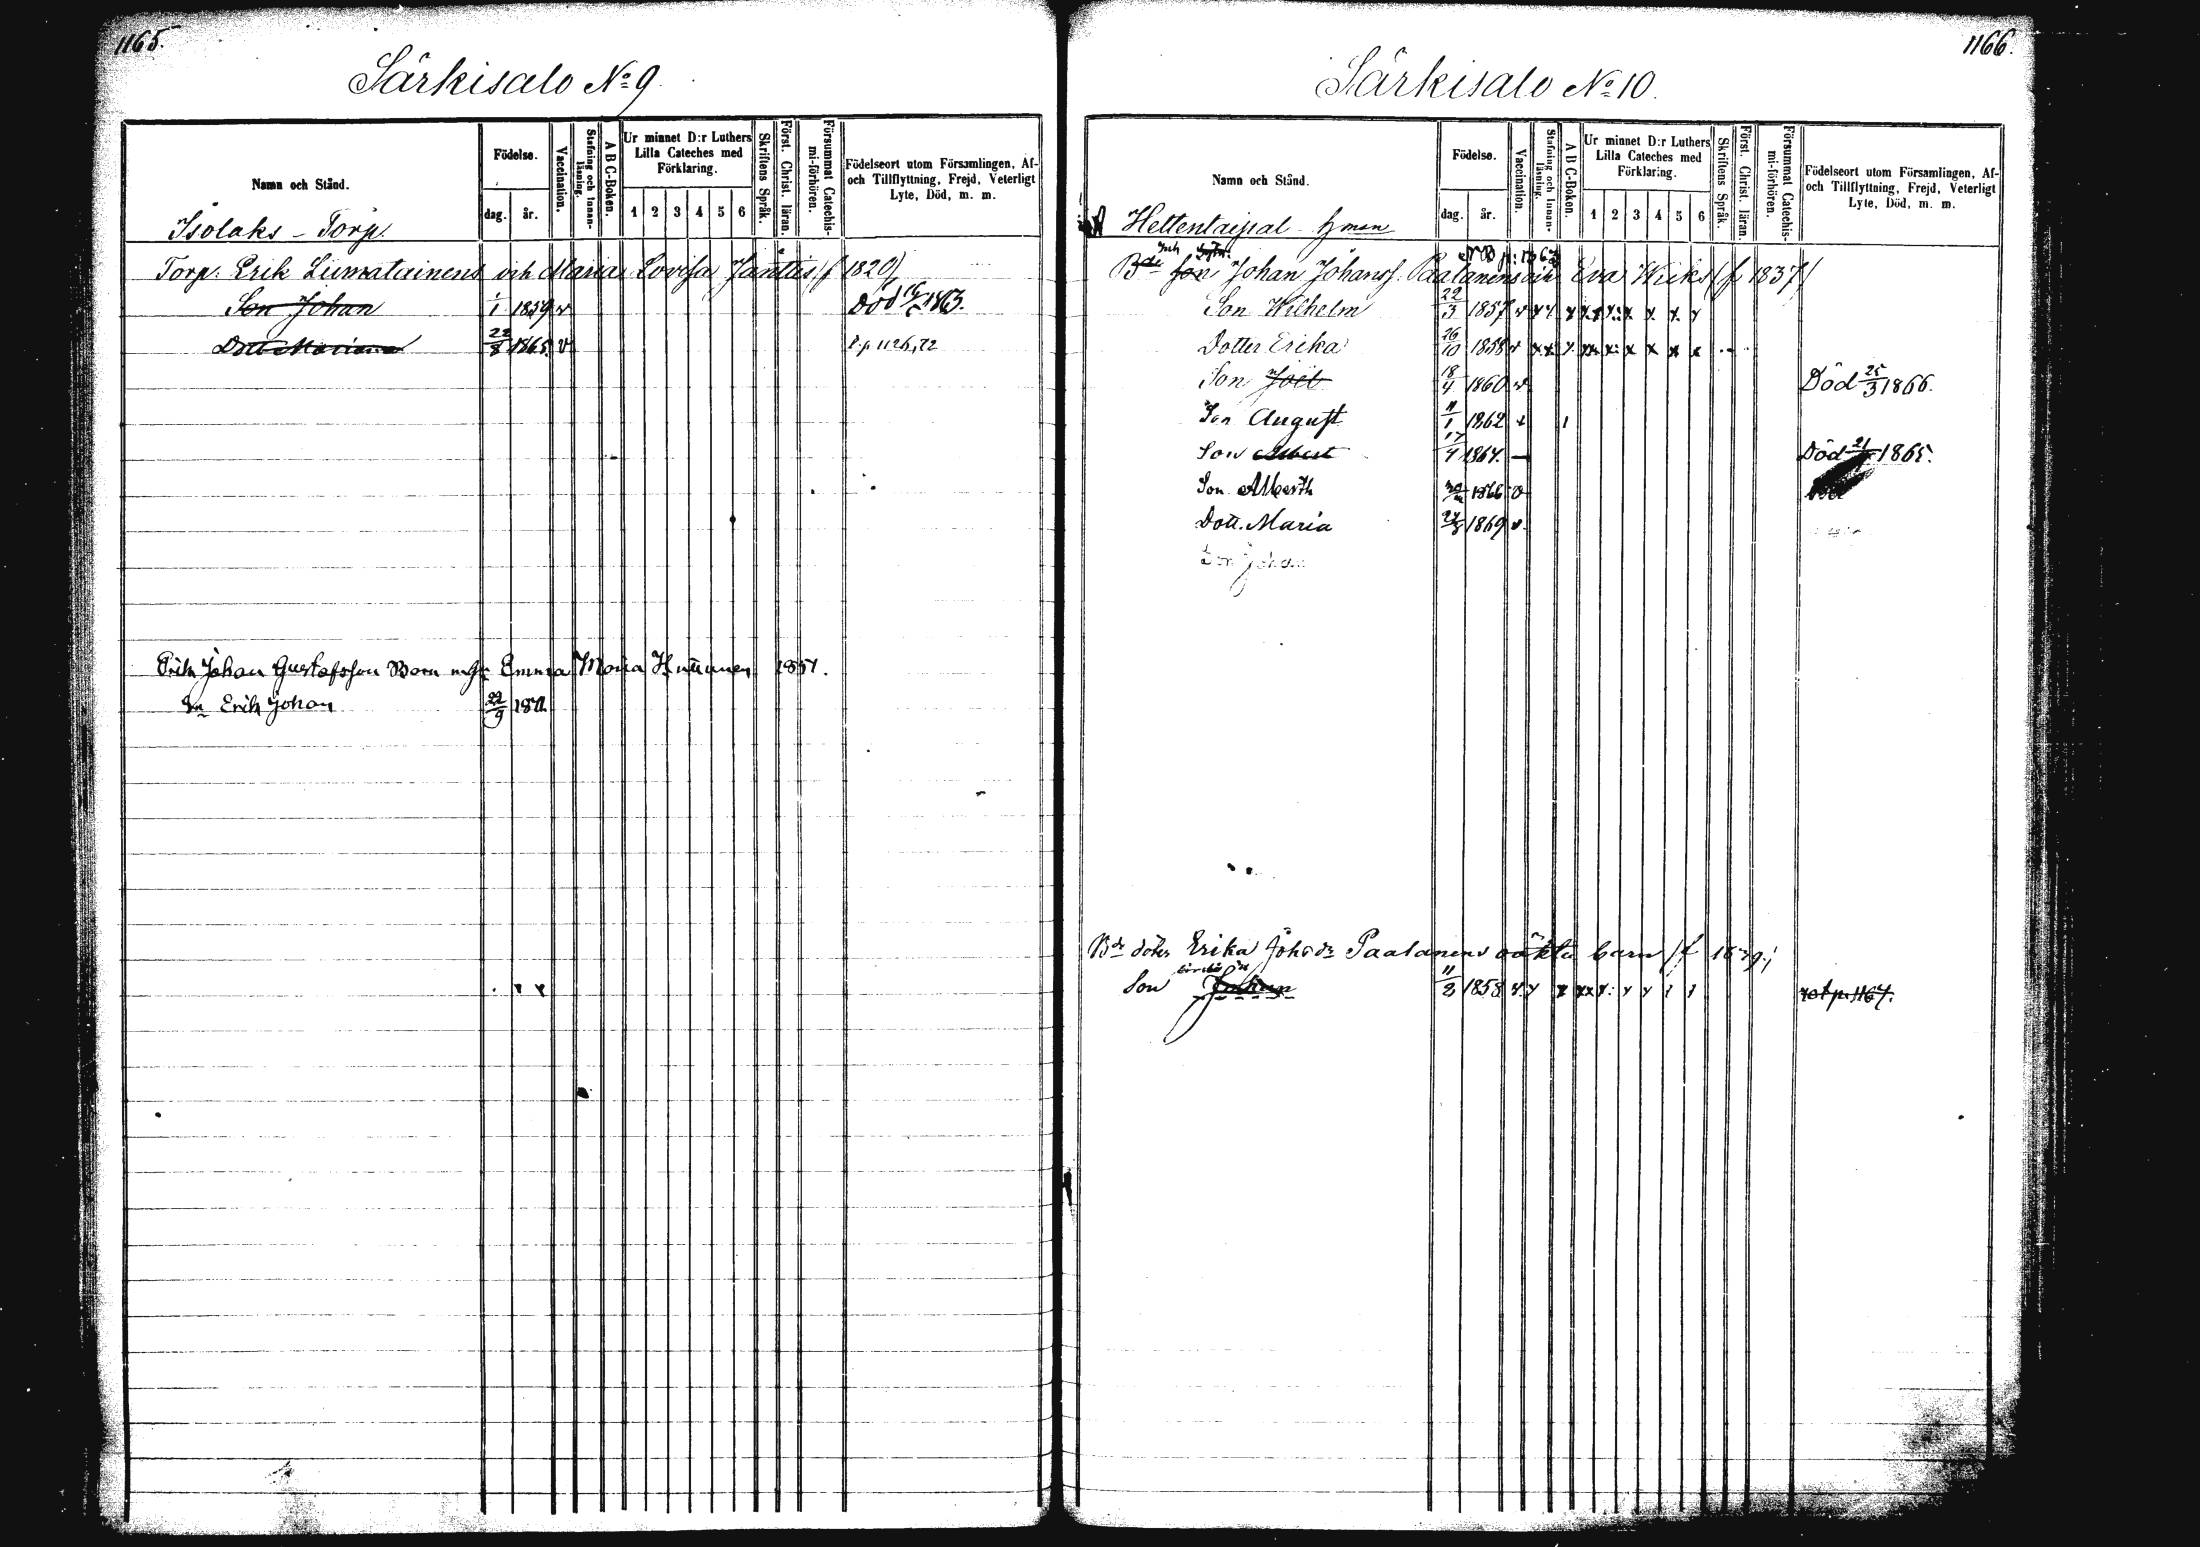 1165.
Särkisalo No 9.
Namn och Stånd.
Födelse.
dag. år.
Vaccination.
Stafning och Innan-läsning.
A B C-Boken.
Ur minnet D:r Luthers Lilla Cateches med Förklaring.
1 2 3 4 5 6
Skriftens Språk.
Först. Christ. läran.
Försummat Catechis-mi-förhören.
Födelseort utom Församlingen, Af- och Tillflyttning, Frejd, Veterligt Lyte, Död, m. m.
Isolaks - Torp.
Torp. Erik Liimatainens och Maria Lovisa Jäntti (f 1820)
Son Johan 1/1 1859 v Död 1863.
Dott Mariana 22/8 1865 v P. p 1126, 72
Erik Johan Gustafsson Born m h Emma Maria 1851.
Sn Erik Johan 22/9 1871.
1166.
Särkisalo No 10.
Namn och Stånd.
Födelse.
dag. år.
Vaccination.
Stafning och Innan-läsning.
A B C-Boken.
Ur minnet D:r Luthers Lilla Cateches med Förklaring.
1 2 3 4 5 6
Skriftens Språk.
Först. Christ. läran.
Försummat Catechis-mi-förhören.
Födelseort utom Församlingen, Af- och Tillflyttning, Frejd, Veterligt Lyte, Död, m. m.
Hettentaipal hman
Bde son Johan Johanss. Paalanens och Eva Wicks (f 1837)
Son Wilhelm 22/3 1857 v
Dotter Erika 26/10 1858 v
Son Joel 18/4 1860 v Död 25/3 1866.
Son August 11/1 1862
Son Albert 17/4 1864. — Död 21 1865.
Son Alberth 1866 v
Dott. Maria 24/8 1869 v.
Son Johan
Bde doter Erika Johsdr Paalanens oäkta barn (f
Son Johan 11/8 1858 p. 1167.